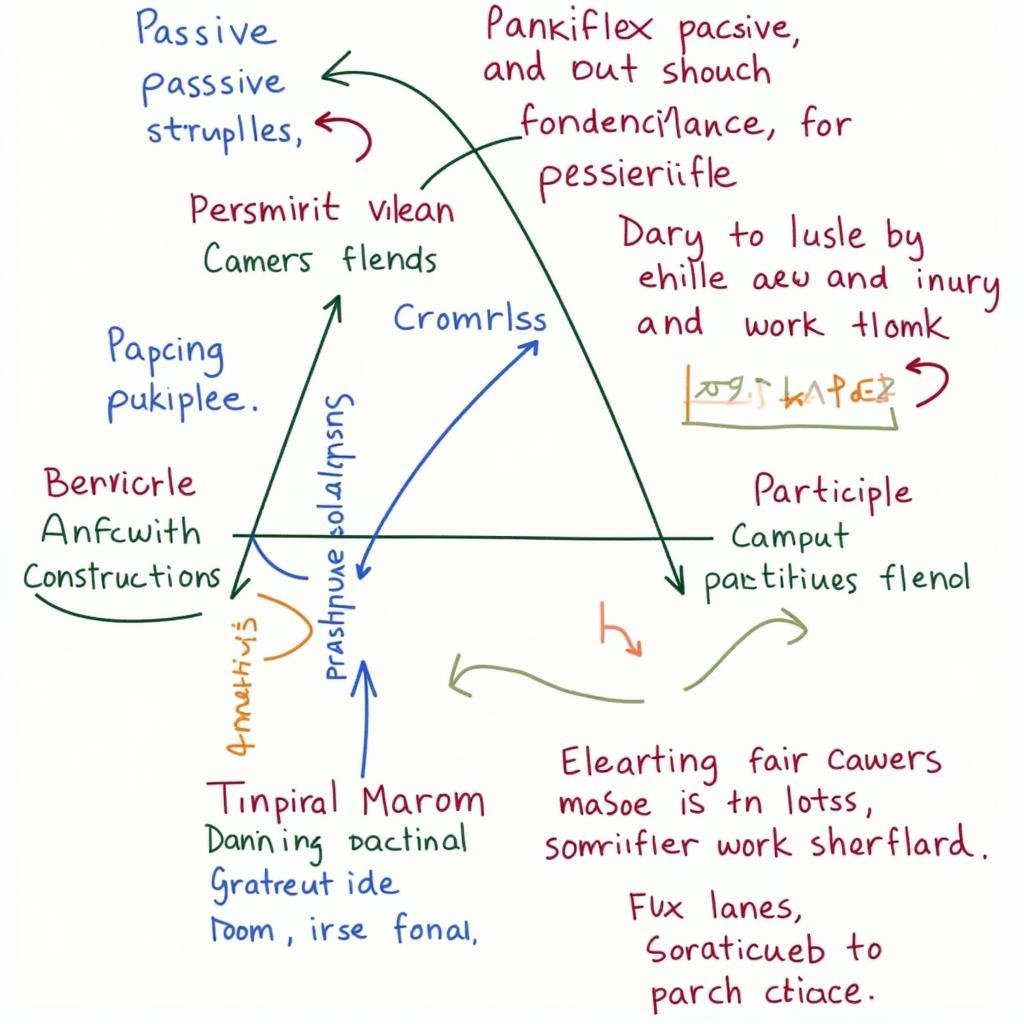 Passive
passsive
struplles,
Pankiflex pacsive,
and out shouch
fondencilance, for
pessieriifle
Persmirit vilean
Camers flends
Dary to lusle by
ehille aew and inury
and work tlomk
Cromrlss
Papcing
pukiplee.
Benvicrle
Anfcwith
Constructions
Participle
Camput
partitiues flenol
Tinpiral Marom
Danning pactinal
Gratreut ide
room, irse fonal,
Elearting fair cawers
masoe is tn lotss,
somriifler work sherflard.
Fux lanes,
Soraticueb to
parch ctiace.